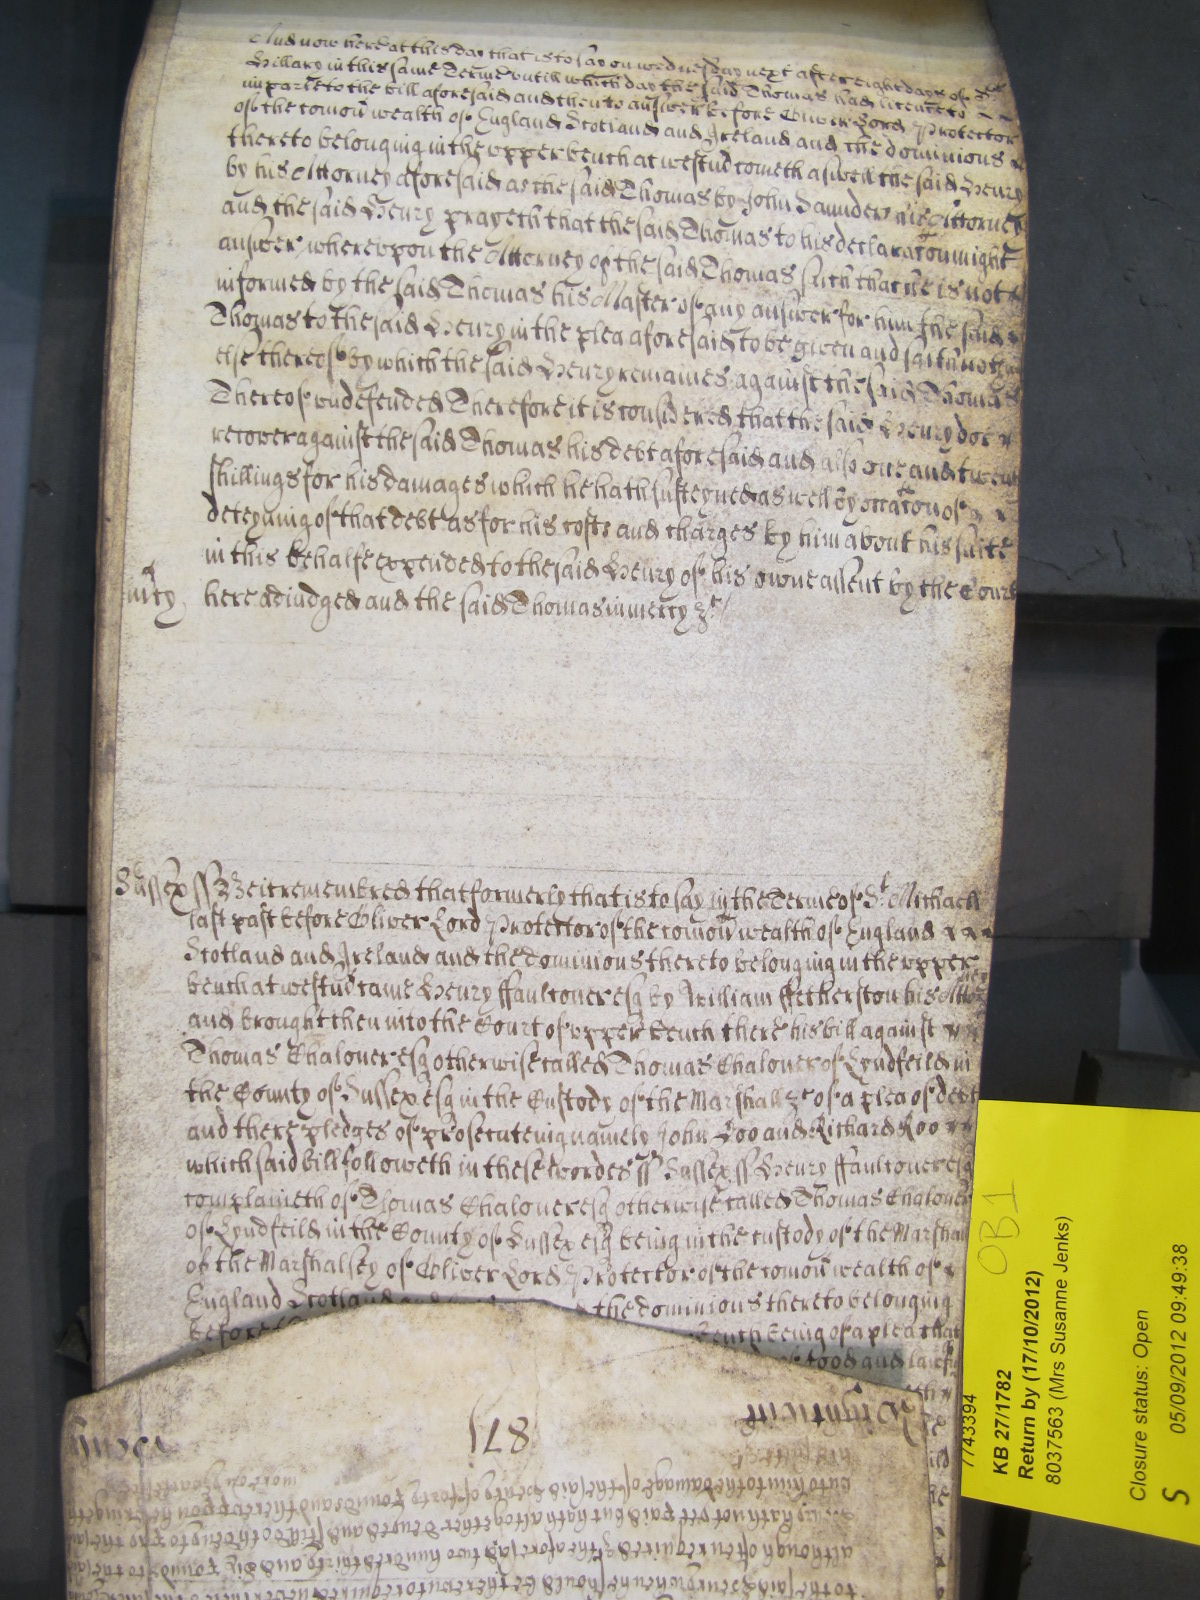 And now here at this day that is to say on wednesday next after eight days of St
Hillary in this same Terme untill which day the said Thomas had licence to
imparle to the bill aforesaid and then to answer &c before Oliver Lord Protector
of the comon wealth of England Scotland and Ireland and the dominions
thereto belonging in the upper bench at westmr cometh aswell the said Henry
by his Attorney aforesaid as the said Thomas by John Saunder his Attorney
and the said Henry prayeth that the said Thomas to his declaracon might
answer, whereupon the Attorney of the said Thomas saith that he is not
informed by the said Thomas his Master of any answer for him the said
Thomas to the said Henry in the plea aforesaid to be given and saith nothing
else thereof by which the said Henry remaines against the said Thomas
Thereof undefended Therefore it is considered that the said Henry doe
recover against the said Thomas his debt aforesaid and also one and twenty
shillings for his damages which he hath susteyned aswell by occacon of
deteyning of that debt as for his costs and charges by him about his suite
in this behalfe expended to the said Henry of his owne assent by the Court
here adiudged and the said Thomas in mercy &c
Sussex ss Be it remembred that formerly that is to say in the Terme of St Michaell
last past before Oliver Lord Protector of the comon wealth of England
Scotland and Ireland and the dominions thereto belonging in the upper
bench at westmr came Henry ffaulconer esq by William ffetherston his Attorney
and brought then into the Court of upper bench there his bill against
Thomas Chaloner esq otherwise called Thomas Chaloner of Lyndfeild in
the County of Sussex esq in the Custody of the Marshall &c of a plea of debt
and there pledges of prosecuteing namely John Doo and Richard Roo
which said bill followeth in these wordes ss Sussex ss Henry ffaulconer esq
complaineth of Thomas Chaloner esq otherwise called Thomas Chaloner
of Lyndfeild in the County of Sussex esq being in the custody of the Marshall
of the Marshalsey of Oliver Lord Protector of the comon wealth of
England Scotland and the dominions thereto belonging
before bench being of a plea that
of good and lawfu
871
unto him to the damage of the said Henry of forty Pounds and thereupon he bringeth
Henry hath not yet paid but hath altogether denyed and still doth deny to pay the
although often required &c the aforesaid two hundred thirty and six Pounds to the said
to the said Henry when he should be thereunto required
7743394
KB 27/1782
Return by (17/10/2012)
8037563 (Mrs Susanne Jenks)
OB1
Closure status: Open
05/09/2012 09:49:38
S